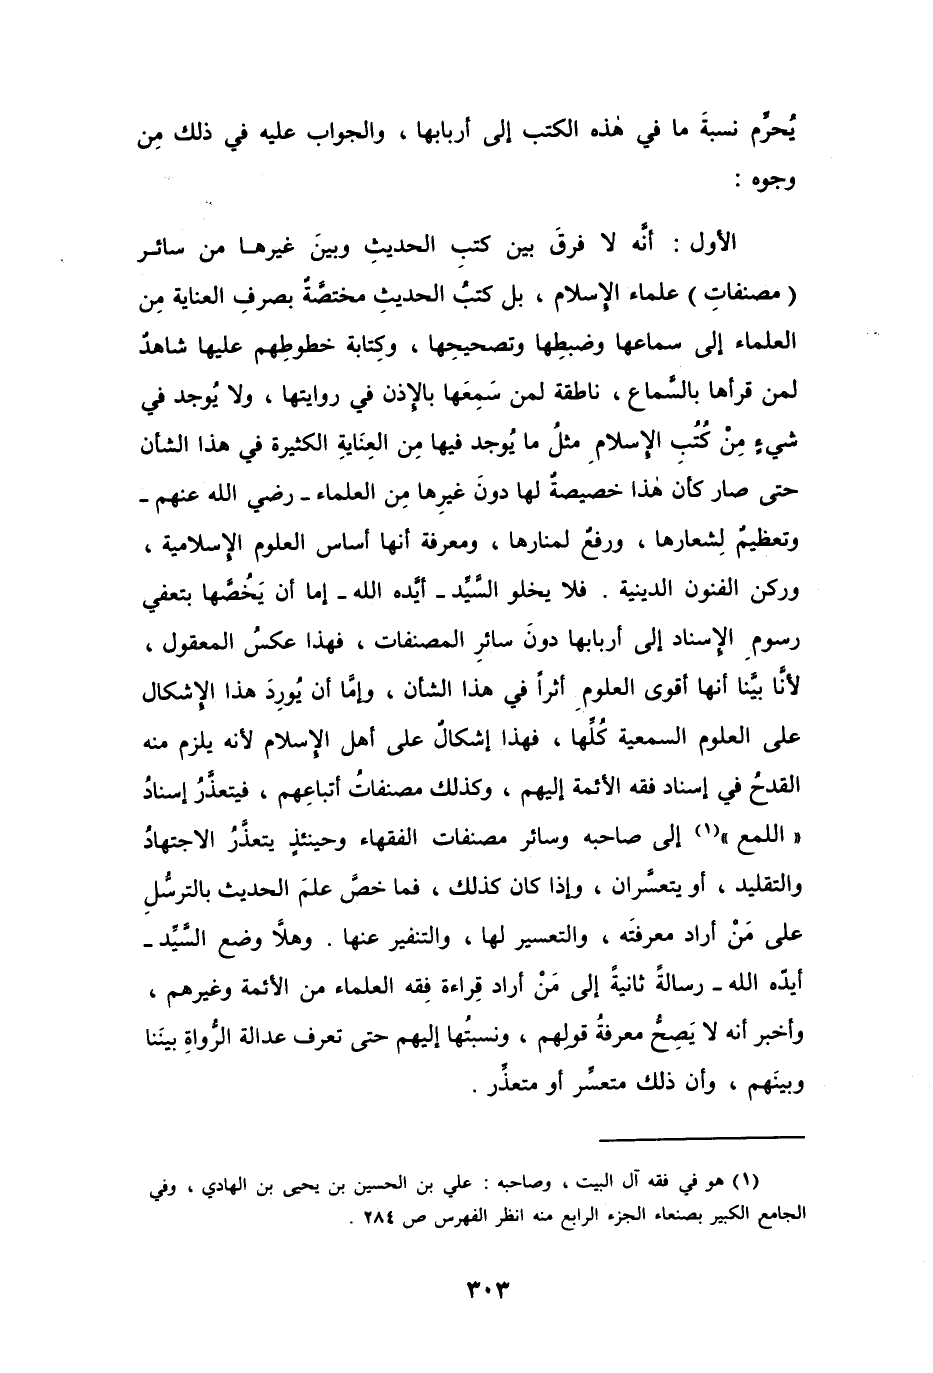 يُحرِّم نسبةَ ما في هٰذه الكتب إلى أربابها ، والجواب عليه في ذلك مِن
وجوه :
الأول : أنَّه لا فرقَ بين كتبِ الحديثِ وبينَ غيرهـا من سائـر
( مصنفاتِ ) علماء الإِسلام ، بل كتبُ الحديثِ مختصَّةٌ بصرفِ العناية مِن
العلماء إلى سماعها وضبطِها وتصحيحِها ، وكِتابة خطوطِهم عليها شاهدٌ
لمن قرأها بالسَّماع ، ناطقة لمن سَمِعَها بالإِذن في روايتها ، ولا يُوجد في
شيءٍ مِنْ كُتُبِ الإِسلامِ مثلُ ما يُوجد فيها مِن العِنَايةِ الكثيرة في هذا الشأن
حتى صار كأن هٰذا خصيصةٌ لها دونَ غيرِها مِن العلماء ـ رضي الله عنهم ـ
وتعظيمٌ لِشعارها ، ورفعٌ لمنارها ، ومعرفة أنها أساس العلوم الإِسلامية ،
وركن الفنون الدينية . فلا يخلو السَّيِّد ـ أيَّده الله ـ إما أن يَخُصَّها بتعفي
رسومِ الإِسناد إلى أربابها دونَ سائرِ المصنفات ، فهذا عكسُ المعقول ،
لأنَّا بيَّنا أنها أقوى العلومِ أثراً في هذا الشأن ، وإمَّا أن يُورِدَ هذا الإِشكال
على العلوم السمعية كُلِّها ، فهذا إشكالٌ على أهل الإِسلام لأنه يلزم منه
القدحُ في إسناد فقه الأئمة إليهم ، وكذلك مصنفاتُ أتباعِهم ، فيتعذَّرُ إسنادُ
« اللمع »(١) إلى صاحبه وسائر مصنفات الفقهاء وحينئذٍ يتعذَّرُ الاجتهادُ
والتقليد ، أو يتعسَّران ، وإذا كان كذلك ، فما خصَّ علمَ الحديث بالترسُّلِ
على مَنْ أراد معرفتَه ، والتعسير لها ، والتنفير عنها . وهلَّا وضع السَّيِّد ـ
أيدّه الله ـ رسالةً ثانيةً إلى مَنْ أراد قِراءة فِقه العلماء من الأئمة وغيرهم ،
وأخبر أنه لا يَصِحُّ معرفةُ قولِهم ، ونسبتُها إليهم حتى تعرف عدالة الرُّواةِ بينَنا
وبينَهم ، وأن ذلك متعسِّر أو متعذِّر .
(١) هو في فقه آل البيت ، وصاحبه : علي بن الحسين بن يحيى بن الهادي ، وفي
الجامع الكبير بصنعاء الجزء الرابع منه انظر الفهرس ص ٢٨٤ .
٣٠٣